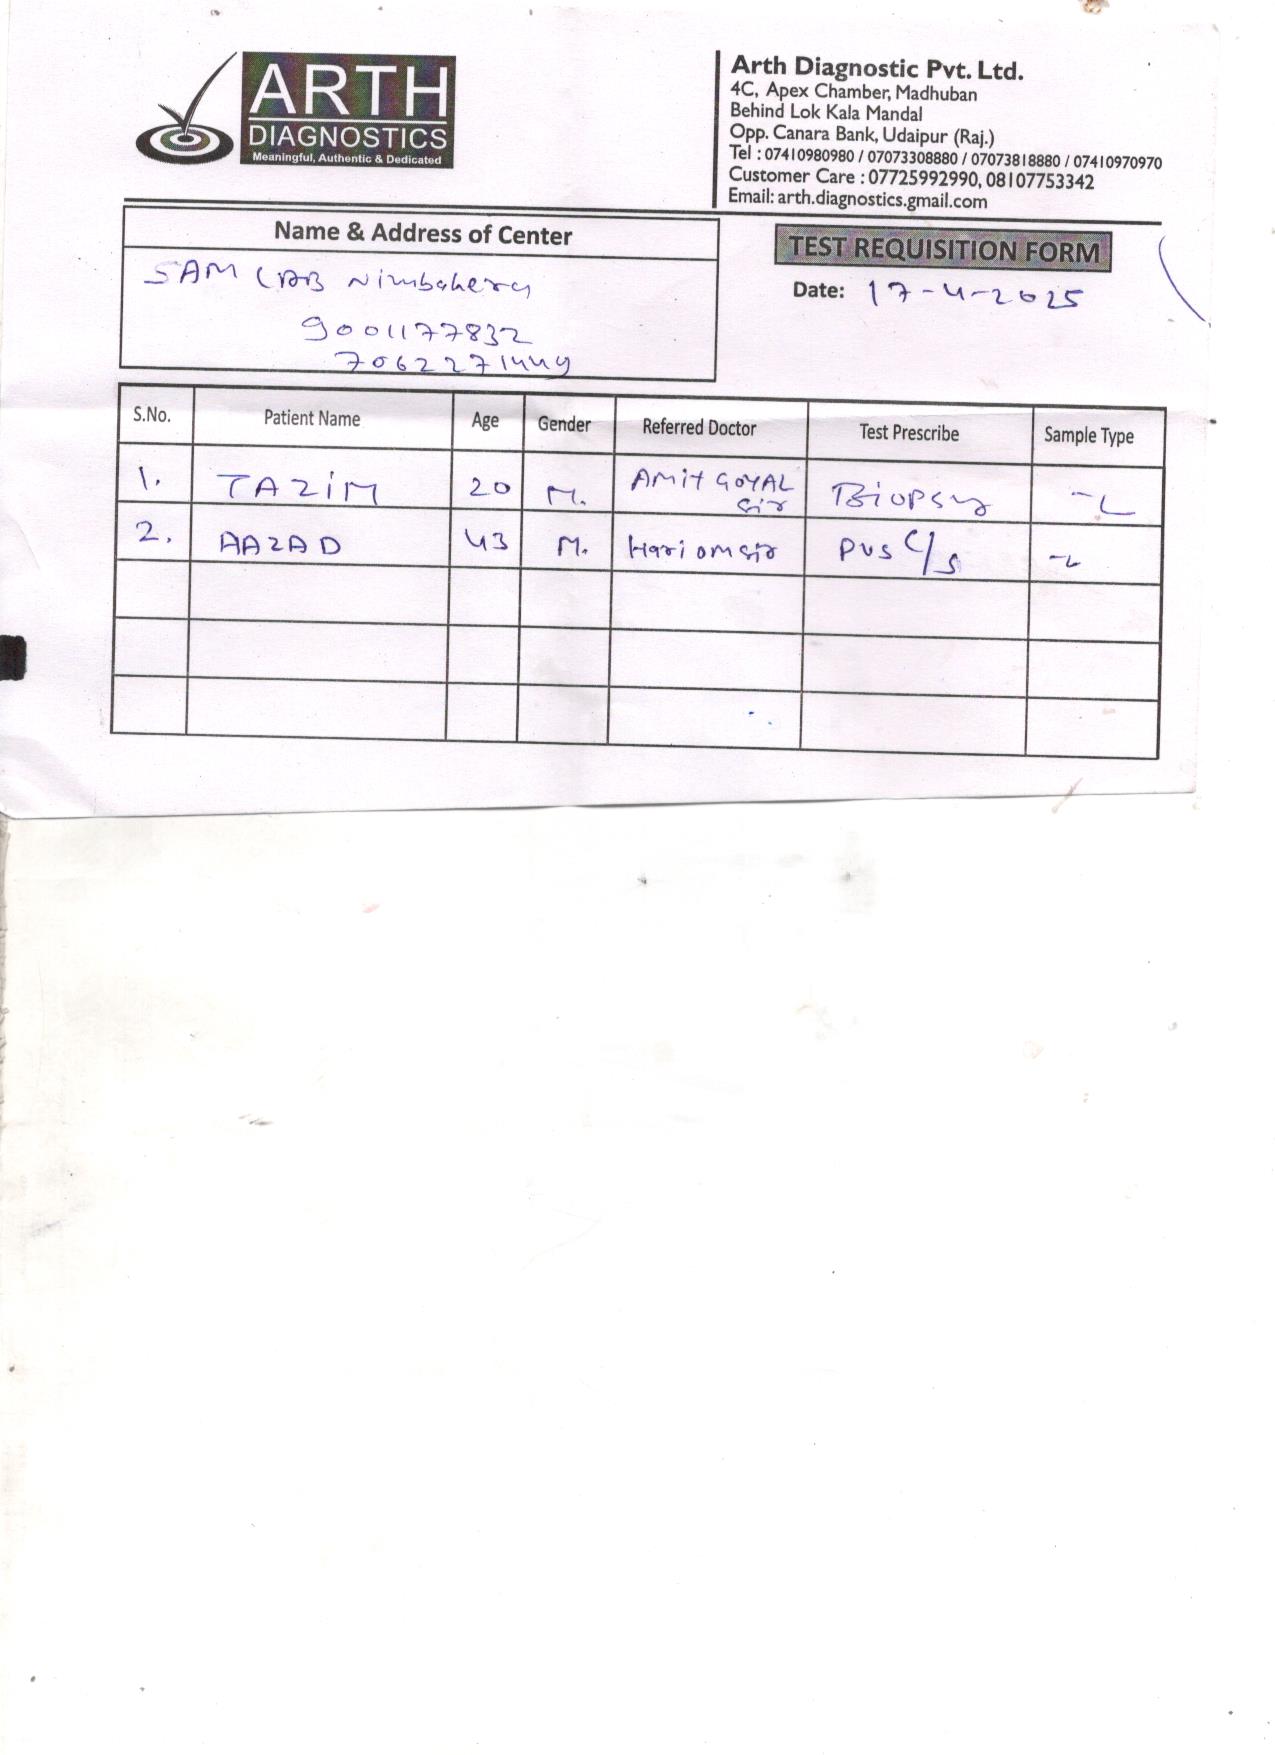 ARTH
DIAGNOSTICS
Meaningful, Authentic & Dedicated
Arth Diagnostic Pvt. Ltd.
4C, Apex Chamber, Madhuban
Behind Lok Kala Mandal
Opp. Canara Bank, Udaipur (Raj.)
Tel : 07410980980 / 07073308880 / 07073818880 / 07410970970
Customer Care : 07725992990, 08107753342
Email: arth.diagnostics.gmail.com
Name & Address of Center
SAM LAB Nimbahera
9001177832
7062271449
TEST REQUISITION FORM
Date: 17-4-2025
S.No. Patient Name Age Gender Referred Doctor Test Prescribe Sample Type
1. TAZIM 20 M. AMIT GOYAL sir Biopsy
2. AAZAD 43 M. Hariom sir PUS C/S